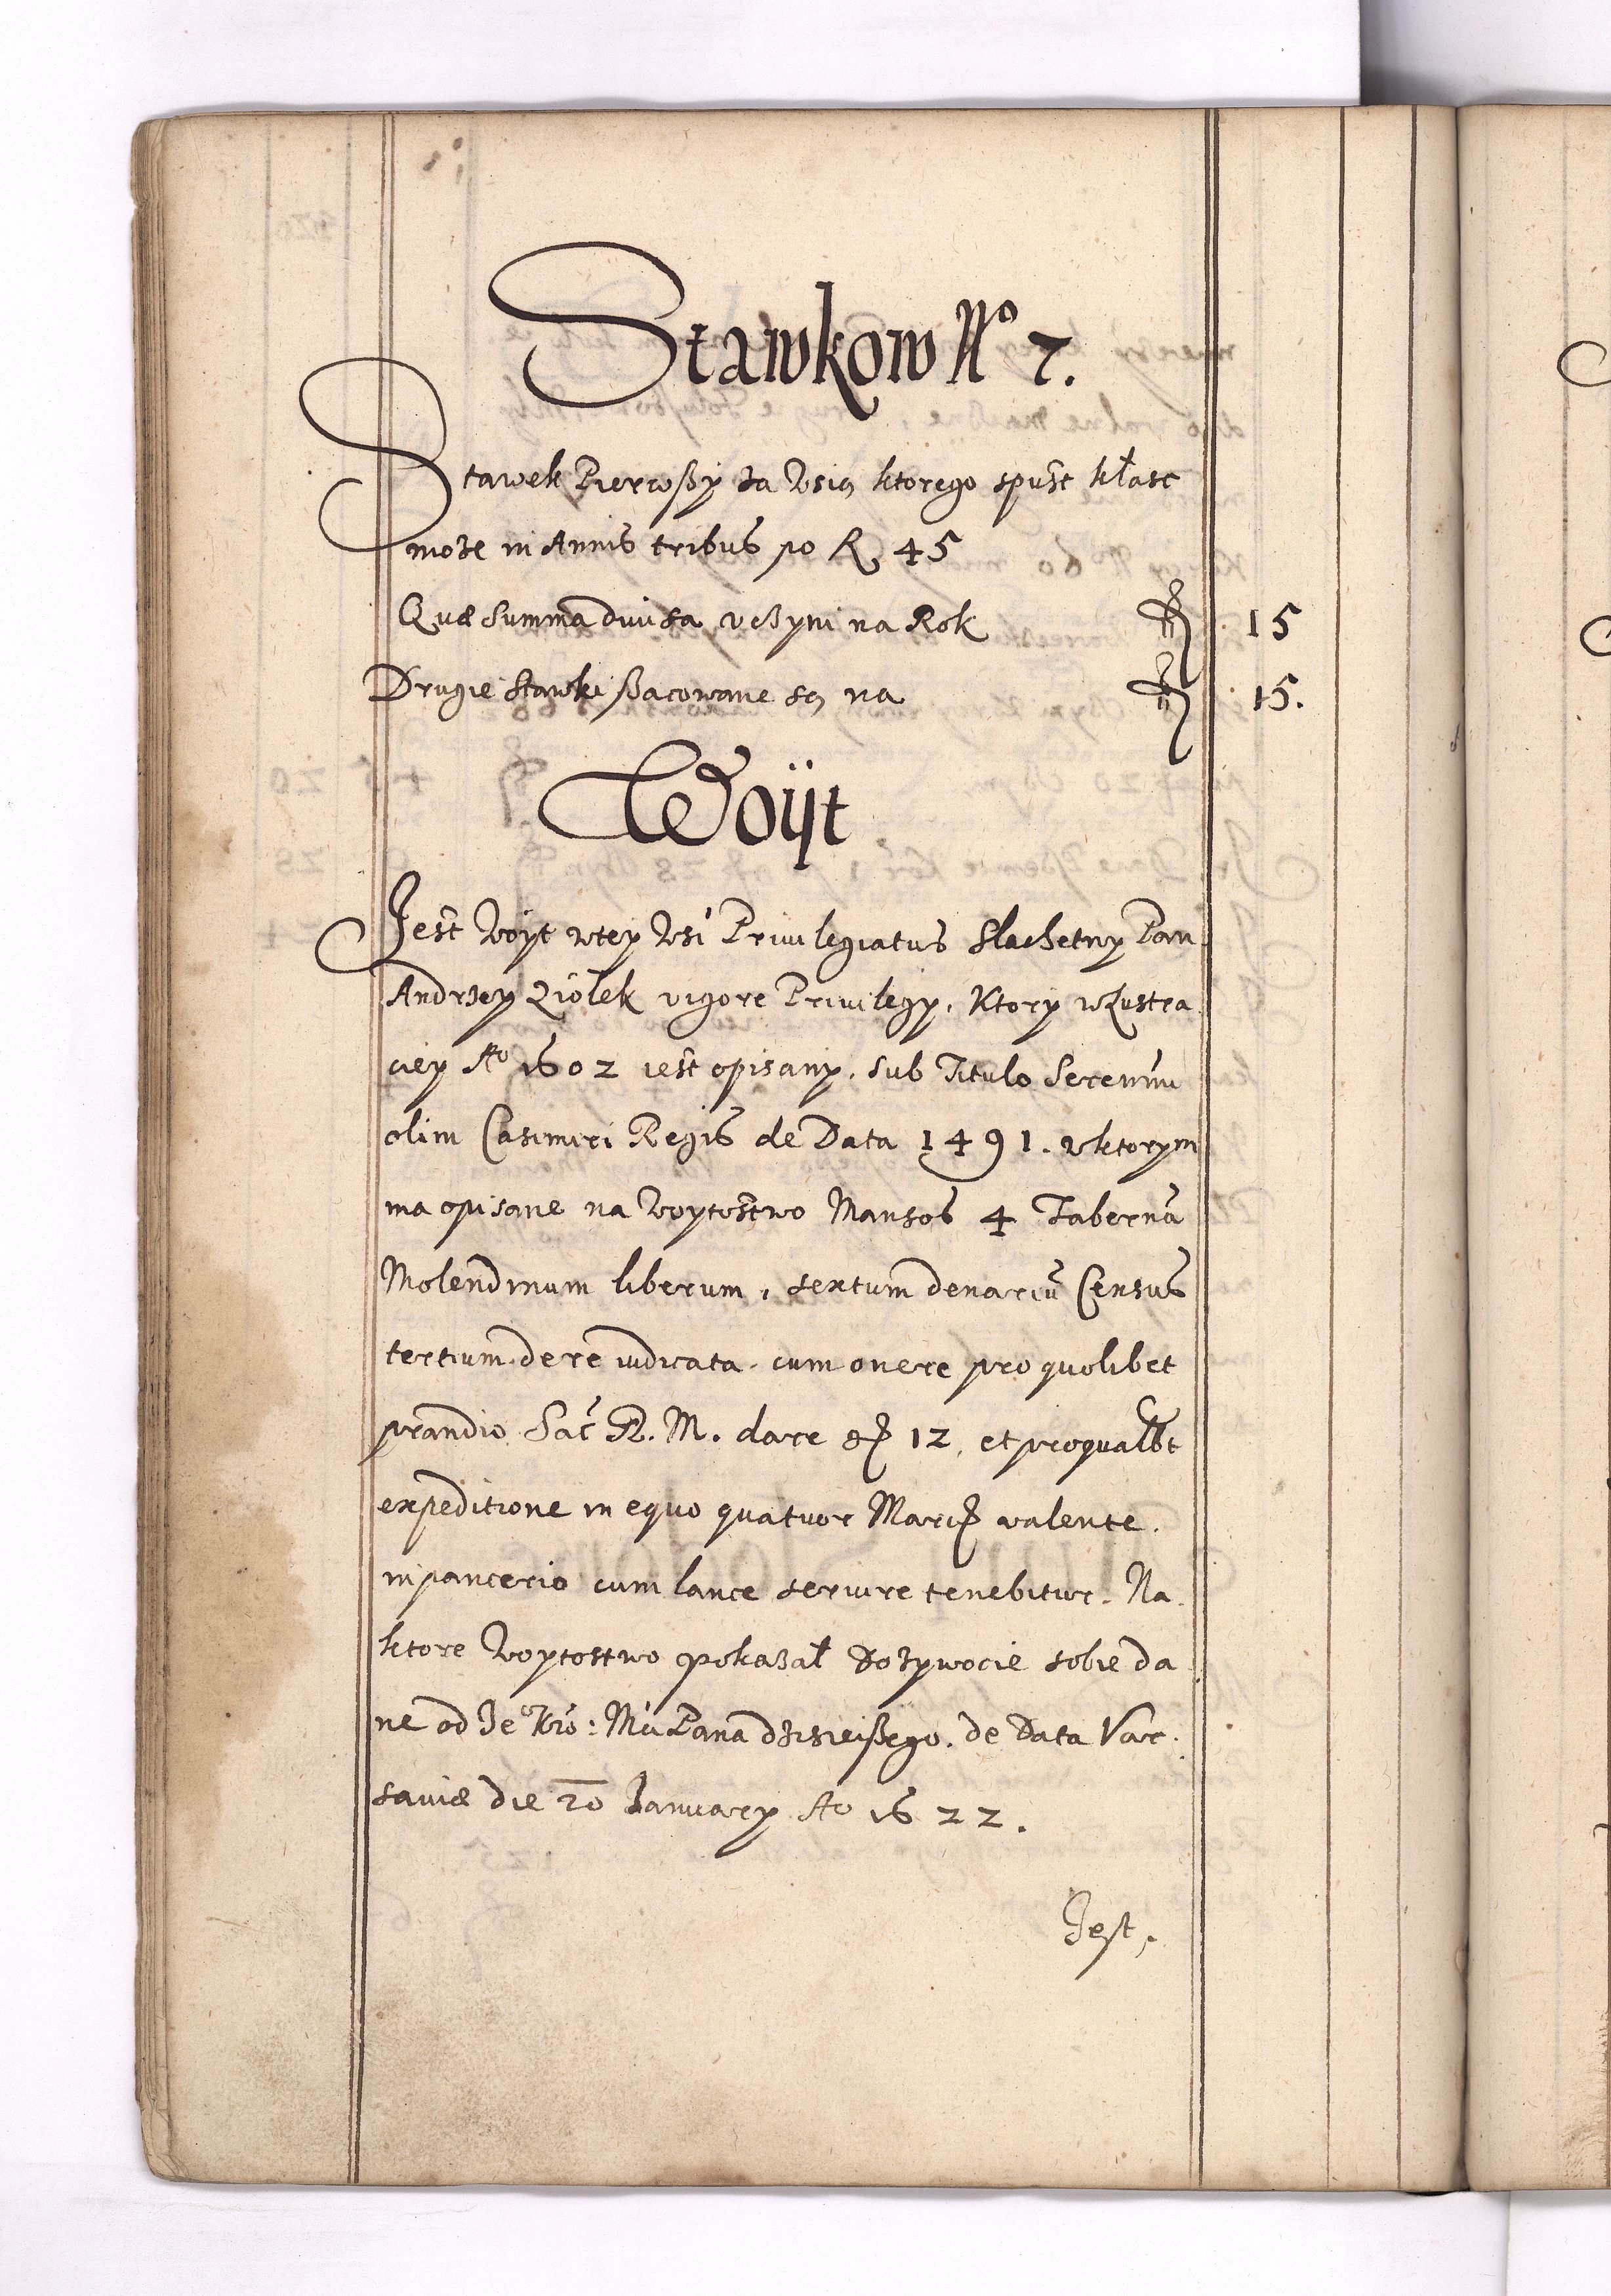 Stawkow No 7.
Stawek Pierwßÿ za Wsią ktorego spust kłasc
może in Annis tribus po R 45
Quæ Summa diuisa vczyni na Rok 15
Drugie Stawki ßacowane są na 15.
Woÿt
Jest Woyt wteÿ Wsi Priuilegiatus Slachetnÿ Pan
Andrzeÿ Ziołek vigore Priuilegÿ, Ktorÿ wLustra
cieÿ Ao 1602 iest opisanÿ, sub Titulo Serenīmi
olim Casimiri Regis de Data 1491. wktorÿm
ma opisane na Woÿtostwo Mansos 4 Tabernā
Molendinum liberum, sextum denariū Census
tertium de re iudicata, cum onere pro quolibet
prandio Sac R. M. dare 12, et proqualbt
expeditione in equo quatuor Marc valente,
inpancerio cum lance seruire tenebitur. Na
ktore Woÿtostwo pokazał dożÿwocie sobie da
ne od Je Kro: Mci Pana dzisieißego. de Data Var
sauiæ die 20 Januarÿ Ao 1622.
Jest,